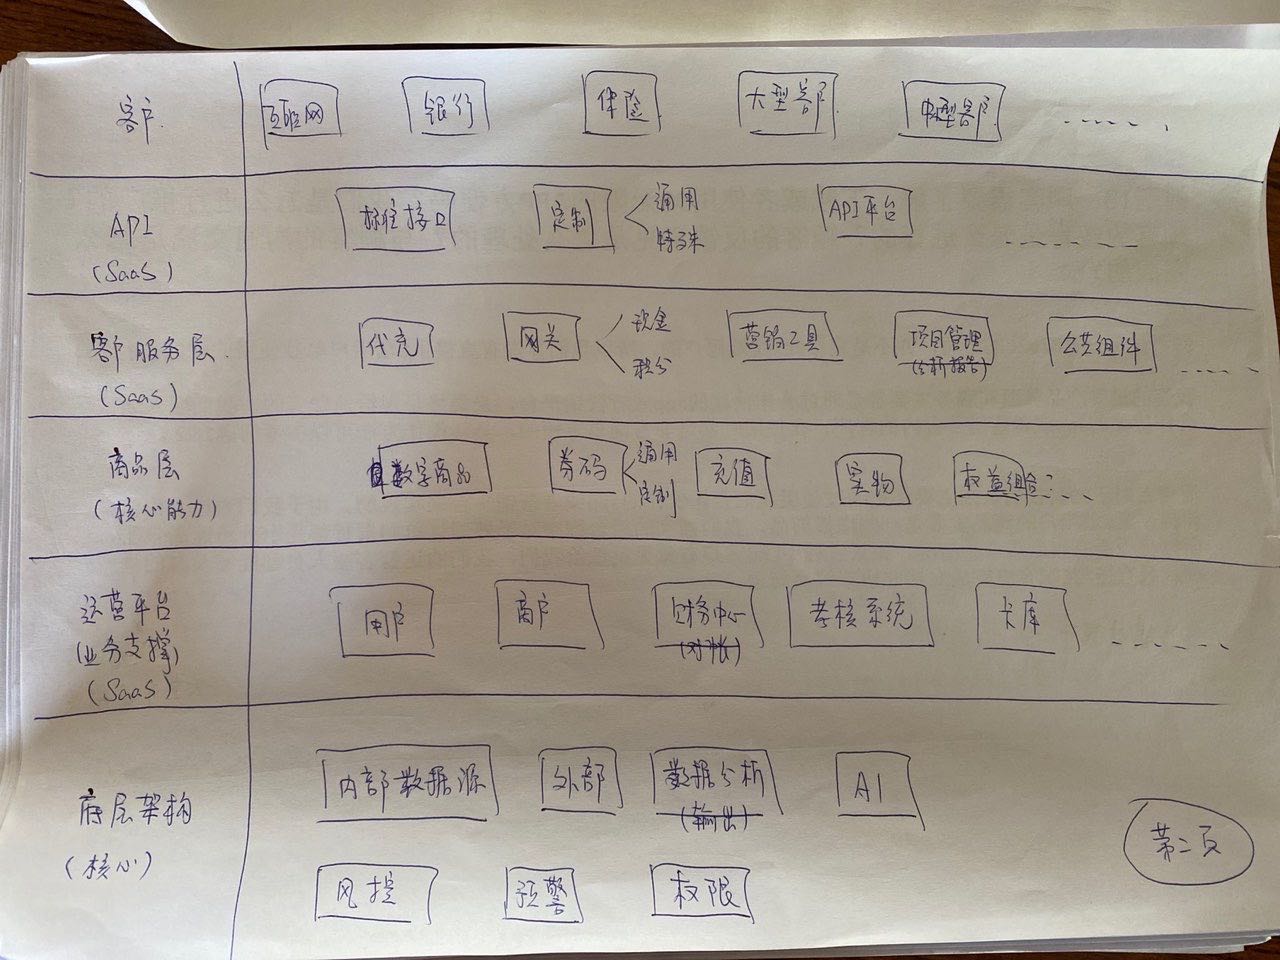 客户
互联网 银行 保险 大型客户 中型客户 ......
API
(SaaS)
标准接口 定制 通用 API平台 ......
特殊
客户服务层
(SaaS)
代充 网关 现金 营销工具 项目管理 公共组件 ......
积分 (分析报告)
商品层
(核心能力)
数字商品 券码 通用 充值 实物 权益组合 ......
定制
运营平台
(业务支撑)
(SaaS)
用户 商户 财务中心 考核系统 卡库 ......
(对账)
底层架构
(核心)
内部数据源 外部 数据分析 AI
(输出)
风控 预警 权限
第二页